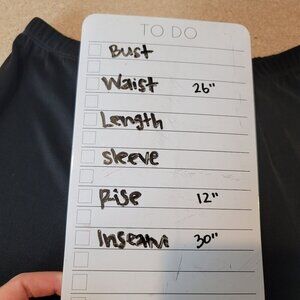 TO DO
Bust
Waist 26"
Length
sleeve
Rise 12"
Inseam 30"